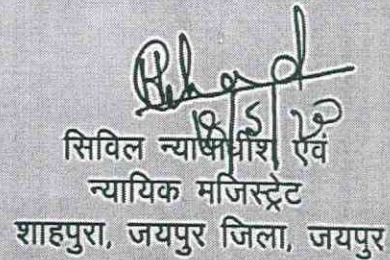 सिविल न्यायाधीश एवं
न्यायिक मजिस्ट्रेट
शाहपुरा, जयपुर जिला, जयपुर